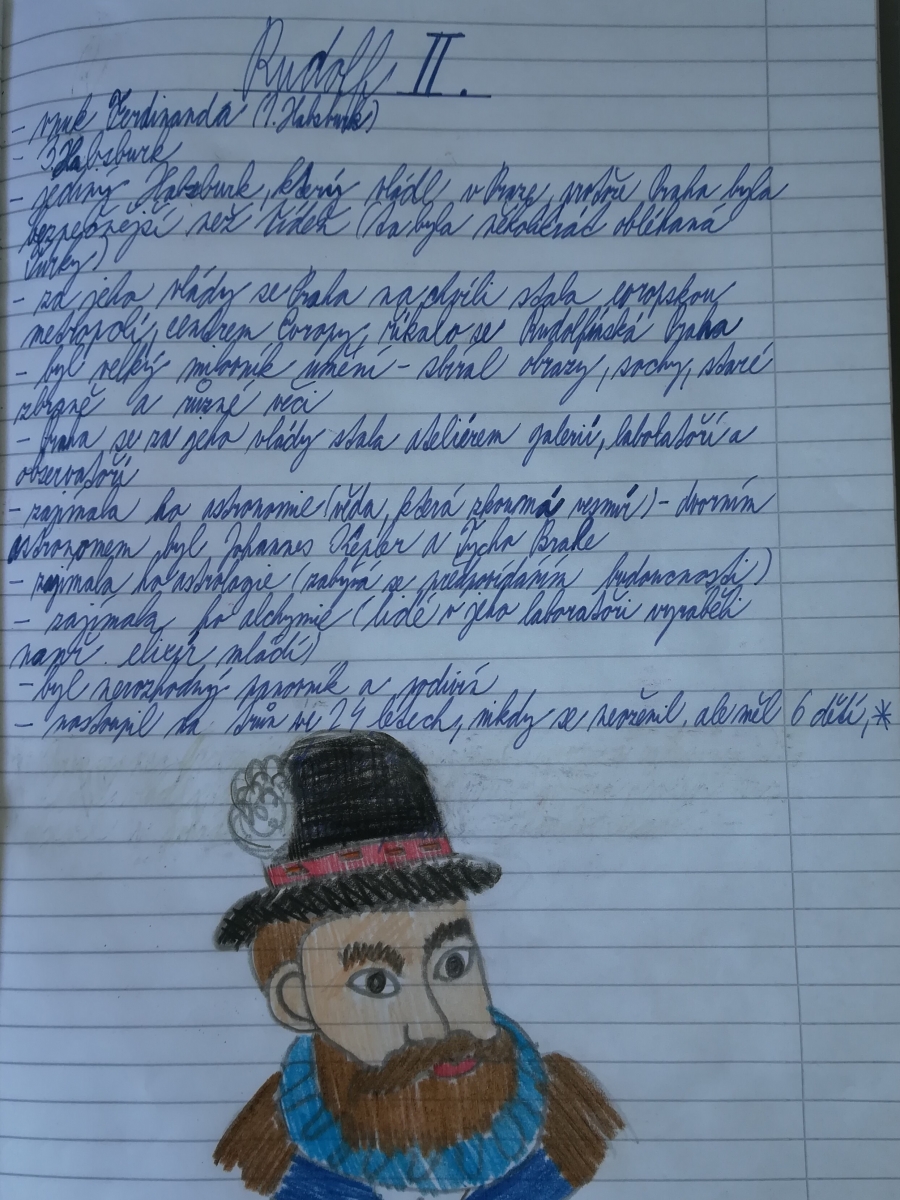 Rudolf II.
- vnuk Ferdinanda (1. Habsburk)
- 3 Habsburk
- jediný Habsburk, který vládl v Praze, protože Praha byla
bezpečnější než Vídeň (ta byla několikrát obléhaná
Turky)
- za jeho vlády se Praha na chvíli stala evropskou
metropolí, centrem Evropy, říkalo se Rudolfínská Praha
- byl velký milovník umění - sbíral obrazy, sochy, staré
zbraně a různé věci
- Praha se za jeho vlády stala ateliérem galerií, laboratoří a
observatoří
- zajímala ho astronomie (věda, která zkoumá vesmír) - dvorním
astronomem byl Johannes Kepler a Tycho Brahe
- zajímala ho astrologie (zabývá se předpovídáním budoucnosti)
- zajímala ho alchymie (lidé v jeho laboratoři vyráběli
např. elixír mládí)
- byl nerozhodný panovník a podivín
- nastoupil na trůn ve 24 letech, nikdy se neoženil, ale měl 6 dětí, *